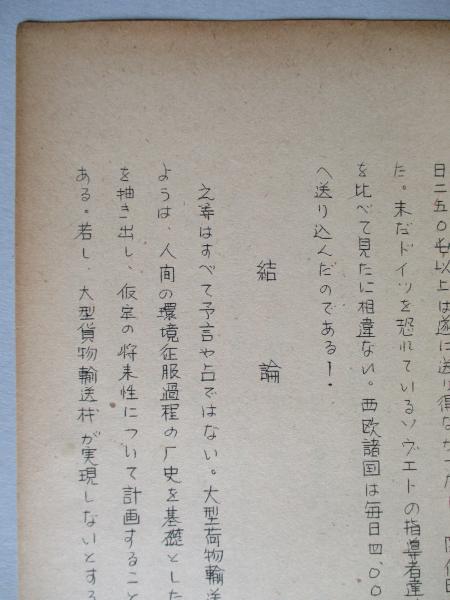 日二五〇屯以上は遂に送り得なかつた
た。未だドイツを恐れているソヴエトの指導者達
を比べて見たに相違ない。西欧諸国は毎日四、〇〇
へ送り込んだのである！.
結論
之等はすべて予言や占ではない。大型荷物輸送
ようは、人間の環境征服過程の厂史を基礎とした
を抽き出し、仮定の将来性について計画すること
ある。若し、大型貨物輸送機が実現しないとする